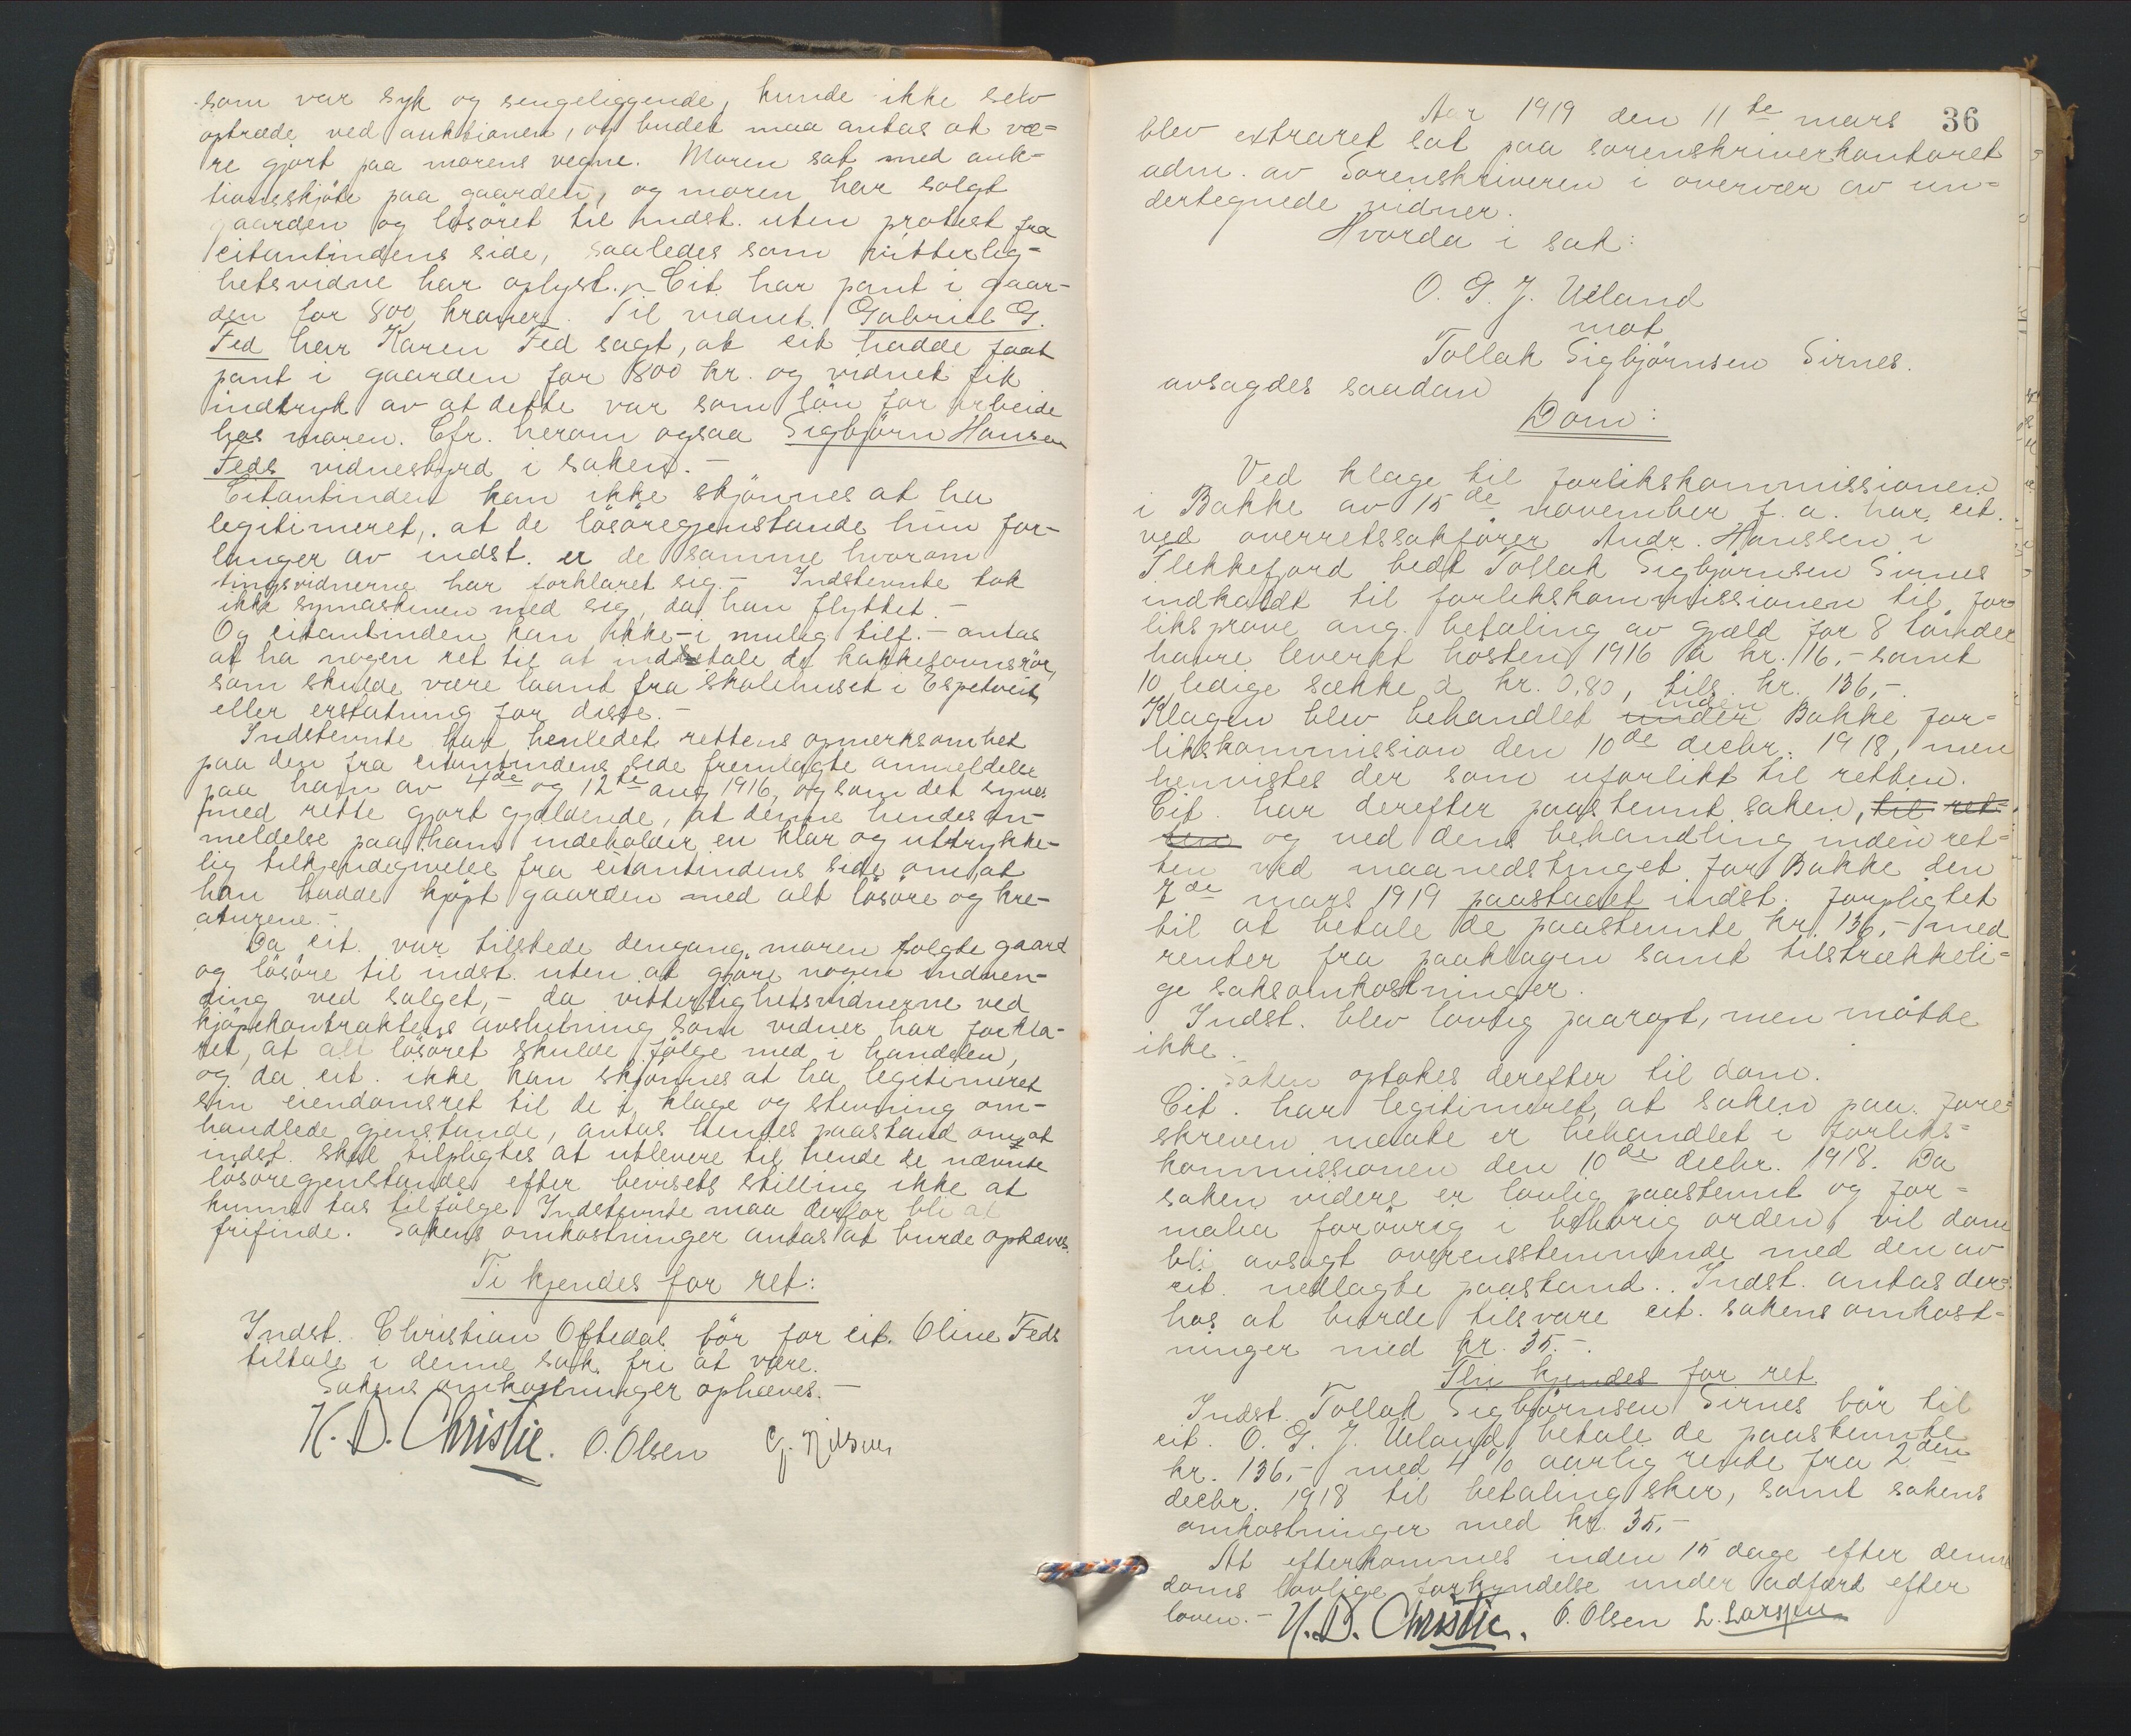 som var syk og sengeliggende, kunde ikke selv
optræde ved auktionen, og budet maa antas at væ=
re gjort paa morens vegne. Moren sat med auk=
tionsskjöte paa gaarden, og moren har solgt
gaarden og lösöret til indst. uten protest fra
citantindens side, saaledes som vitterlig=
hetsvidne har oplyst. Cit. har pant i gaar=
den for 800 kroner. Til vidnet Gabriel G.
Fed har Karen Fed sagt, at cit hadde faat
pant i gaarden for 800 kr. og vidnet fik
indtryk av at dette var som lön for arbeide
hos moren. Cfr. herom ogsaa Sigbjörn Hansen
Feds vidnesbyrd i saken. -
Citantinden kan ikke skjönnes at ha
legitimeret, at de lösöregjenstande hun for-
langer av indst. er de samme hvorom
tingsvidnerne har forklaret sig. - Indstevnte tok
ikke symaskinen med sig, da han flyttet. -
Og citantinden kan ikke - i mulig tilf. - antas
at ha nogen ret til at indtale de kakkelovnsrör,
som skulde være laant fra skolehuset i Espetveit,
eller erstatning for disse. -
Indstevnte har henledet rettens opmerksomhet
paa den fra citantindens side fremlagte anmeldelse
paa ham av 4de og 12te aug 1916, og som det synes
med rette gjort gjældende, at denne hendes an-
meldelse paa ham indeholder en klar og uttrykke-
lig tilkjendegivelse fra citantindens side om, at
han hadde kjöpt gaarden med alt lösöre og kre-
aturene. -
Da cit. var tilstede dengang moren solgte gaard
og lösöre til indst. uten at gjöre nogen indven-
ding ved salget, - da vitterlighetsvidnerne ved
kjöpekontraktens avslutning som vidner har forkla-
ret, at alt lösöret skulde fölge med i handelen,
og da cit. ikke kan skjönnes at ha legitimeret
sin eiendomsret til de i klage og stevning om-
handlede gjenstande, antas hendes paastand om, at
indst. skal tilpligtes at utlevere til hende de nævnte
lösöregjenstande efter bevisets stilling ikke at
kunne tas tilfölge. Indstevnte maa derfor bli at
frifinde. Sakens omkostninger antas at burde ophæves.
Ti kjendes for ret:
Indst. Christian Oftedal bör for cit. Oline Feds
tiltale i denne sak fri at være.
Sakens omkostninger ophæves. -
H. D. Christie. O. Olsen G. Nilsen
36
Aar 1919 den 11te mars
blev extraret sat paa sorenskriverkontoret
adm. av Sorenskriveren i overvær av un=
dertegnede vidner.
Hvorda i sak:
O. G. J. Ueland
mot
Tollak Sigbjörnsen Sirnes.
avsagdes saadan
Dom:
Ved klage til forlikskommissionen
i Bakke av 15de november f. a. har cit.
ved overretssakförer Andr. Hanssen i
Flekkefjord bedt Tollak Sigbjörnsen Sirnes
indkaldt til forlikskommissionen til for=
liksprøve ang. betaling av gjæld for 8 tønder
havre leveret høsten 1916 a kr. 16,- samt
10 ledige sække a kr. 0,80, tils. kr. 136,-.
Klagen blev behandlet under inden Bakke for=
likskommission den 10de decbr. 1918, men
henvistes der som uforlikt til retten.
Cit. har derefter paastevnt saken, til ret=
ten og ved dens behandling inden ret=
ten ved maanedstinget for Bakke den
7de mars 1919 paastaaet indst. forpligtet
til at betale de paastevnte kr. 136,- med
renter fra paaklagen samt tilstrækkeli=
ge saksomkostninger.
Indst. blev lovlig paaropt, men møtte
ikke.
Saken optokes derefter til dom.
Cit. har legitimeret, at saken paa fore=
skreven maate er behandlet i forliks=
kommissionen den 10de decbr. 1918. Da
saken videre er lovlig paastevnt og for=
malia forövrig i behörig orden, vil dom
bli avsagt overensstemmende med den av
cit. nedlagte paastand. Indst. antas der=
hos at burde tilsvare cit. sakens omkost=
ninger med kr. 35.-.
Thi kjendes for ret
Indst. Tollak Sigbjörnsen Sirnes bör til
cit. O. G. J. Ueland betale de paastevnte
kr. 136,- med 4 % aarlig rente fra 2den
decbr. 1918 til betaling sker, samt sakens
omkostninger med kr. 35,-
At efterkommes inden 15 dage efter denne
doms lovlige forkyndelse under adfærd efter
loven. -
H. D. Christie. O. Olsen L. Larssen